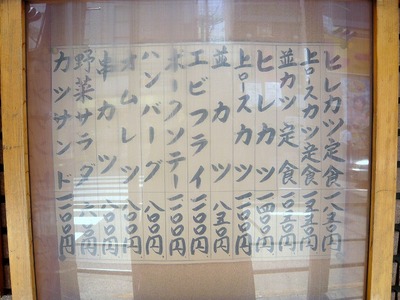 ヒレカツ定食 一八五〇円
上ロースカツ定食 一五五〇円
並カツ定食 一〇五〇円
ヒレカツ 一四〇〇円
上ロースカツ 一一〇〇円
並カツ 八五〇円
エビフライ 一一〇〇円
ポークソテー 一一〇〇円
ハンバーグ 八〇〇円
オムレツ 八〇〇円
串カツ 八〇〇円
野菜サラダ
カツサンド 一一〇〇円